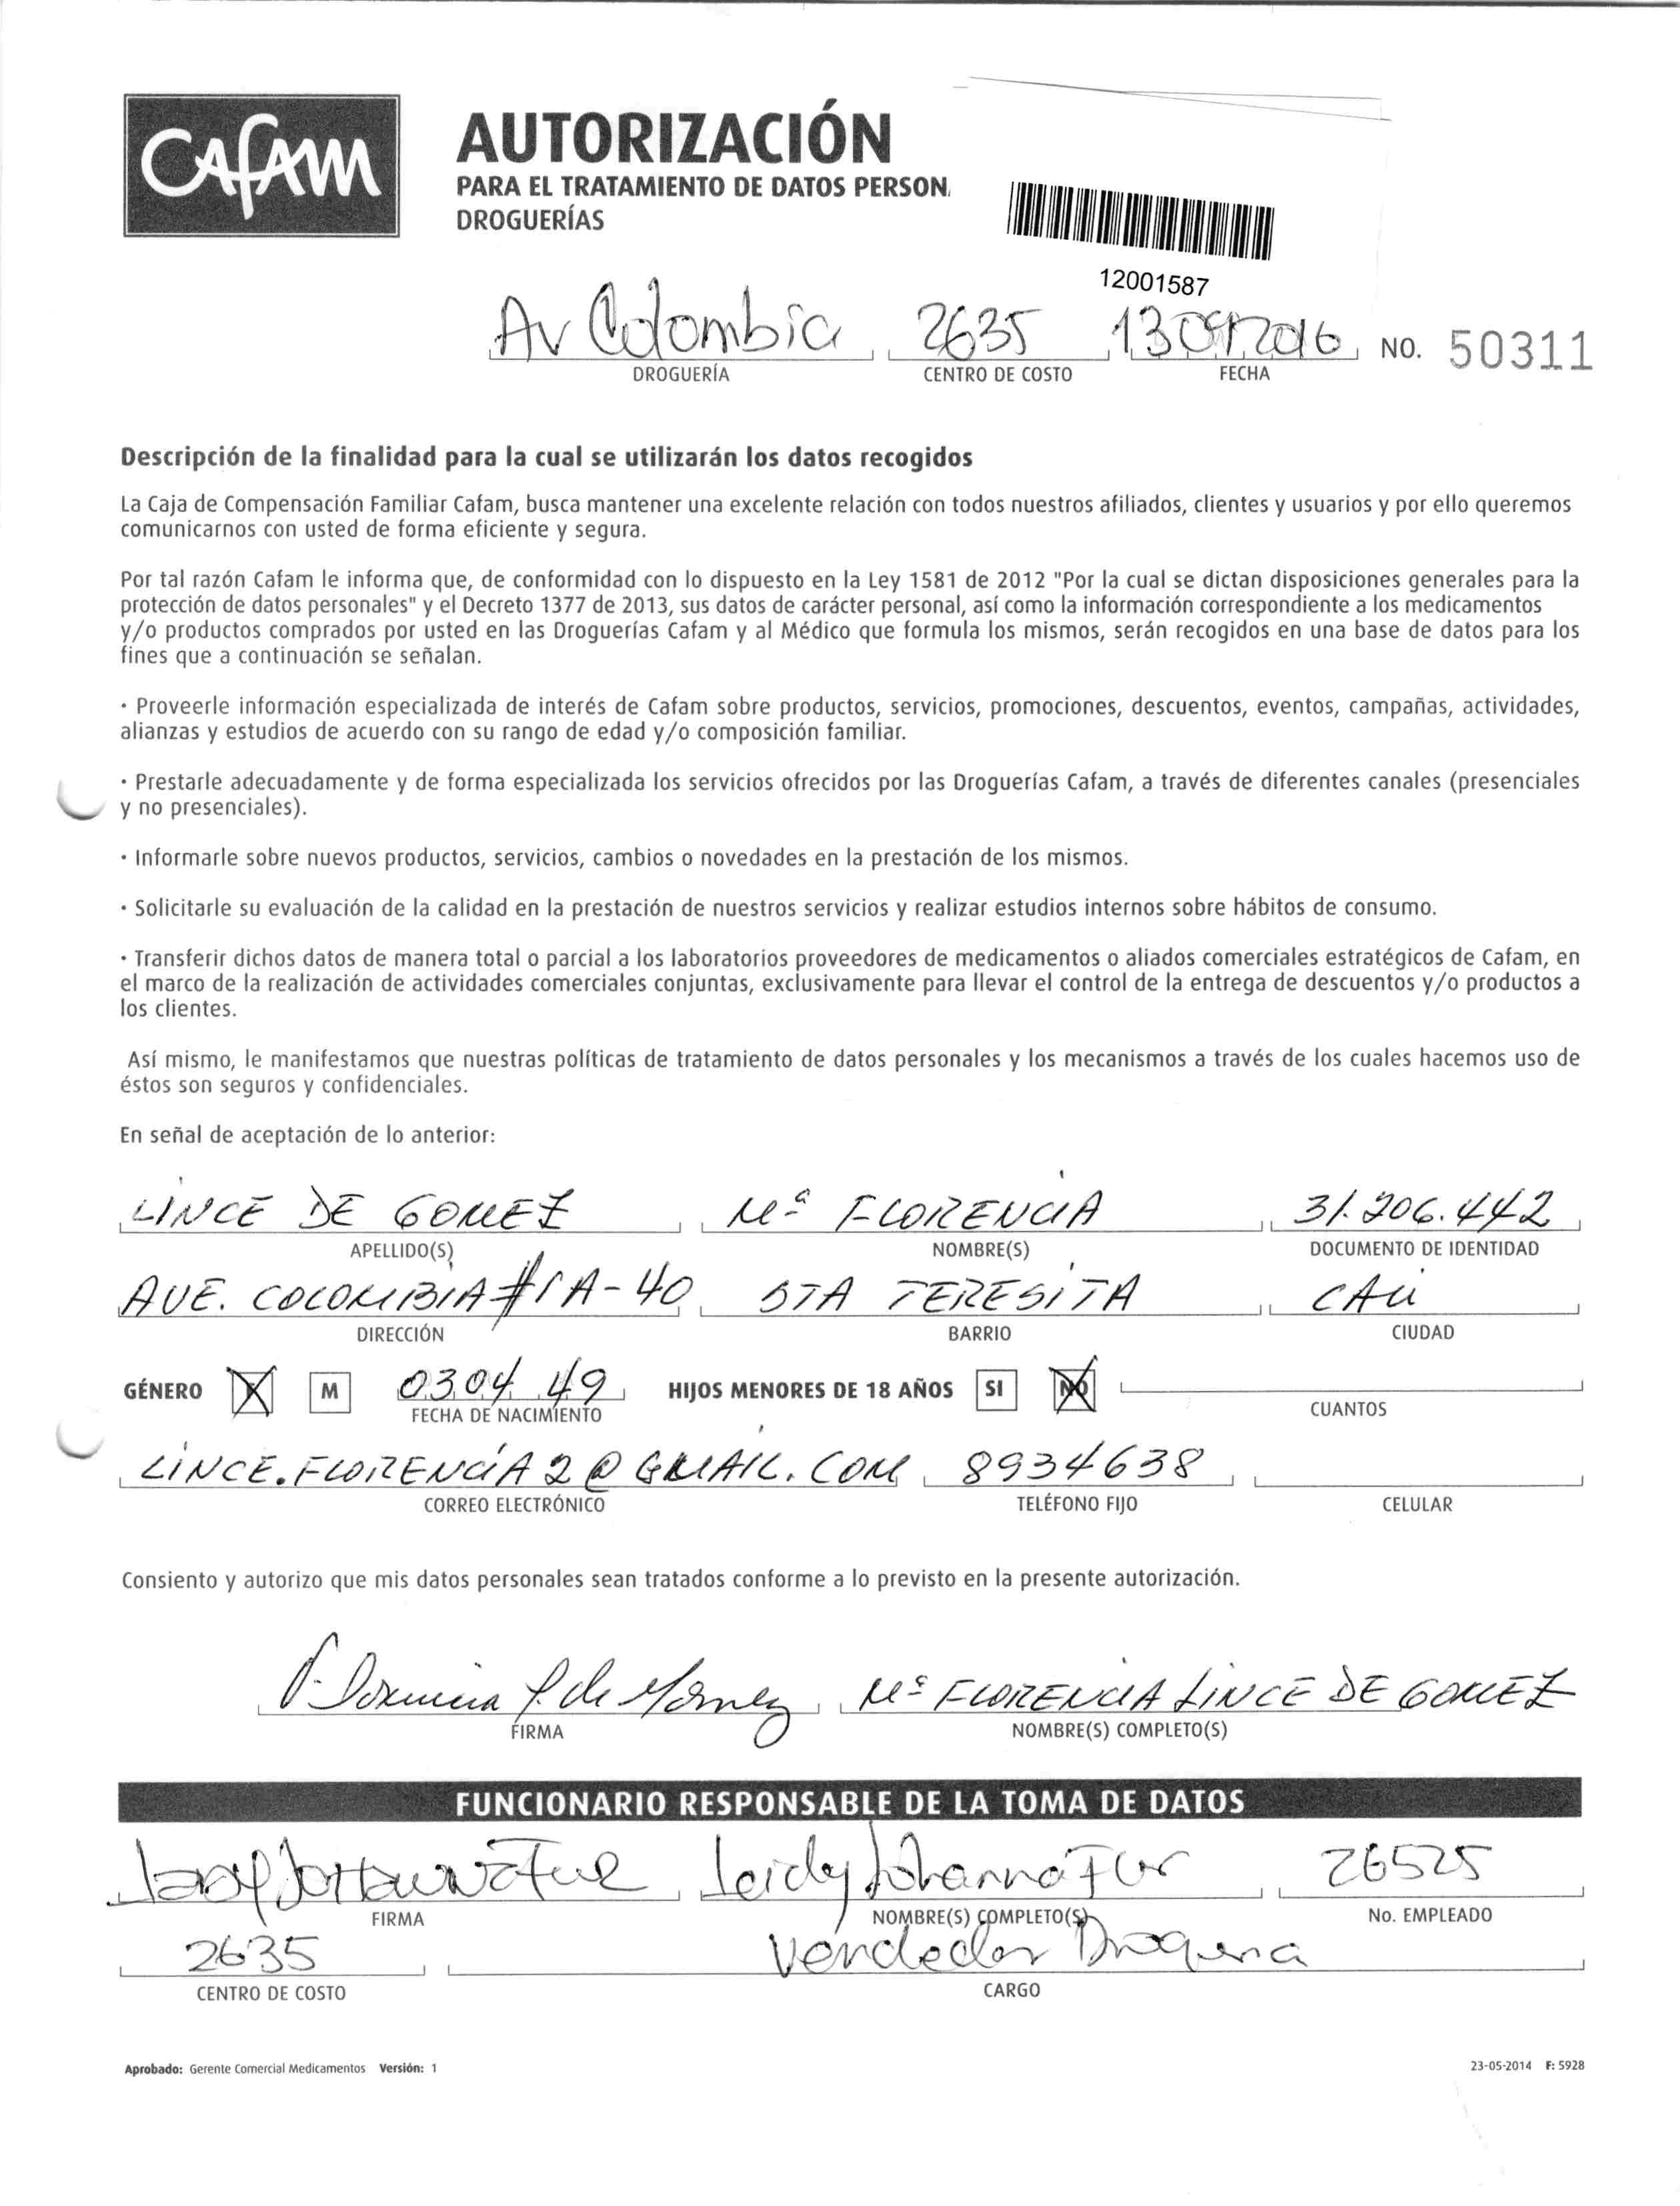 CAFAM
AUTORIZACIÓN
PARA EL TRATAMIENTO DE DATOS PERSON
DROGUERÍAS
12001587
Av Colombia 2635 13 09 2016 NO. 50311
DROGUERÍA CENTRO DE COSTO FECHA
Descripción de la finalidad para la cual se utilizarán los datos recogidos
La Caja de Compensación Familiar Cafam, busca mantener una excelente relación con todos nuestros afiliados, clientes y usuarios y por ello queremos
comunicarnos con usted de forma eficiente y segura.
Por tal razón Cafam le informa que, de conformidad con lo dispuesto en la Ley 1581 de 2012 "Por la cual se dictan disposiciones generales para la
protección de datos personales" y el Decreto 1377 de 2013, sus datos de carácter personal, así como la información correspondiente a los medicamentos
y/o productos comprados por usted en las Droguerías Cafam y al Médico que formula los mismos, serán recogidos en una base de datos para los
fines que a continuación se señalan.
· Proveerle información especializada de interés de Cafam sobre productos, servicios, promociones, descuentos, eventos, campañas, actividades,
alianzas y estudios de acuerdo con su rango de edad y/o composición familiar.
· Prestarle adecuadamente y de forma especializada los servicios ofrecidos por las Droguerías Cafam, a través de diferentes canales (presenciales
y no presenciales).
· Informarle sobre nuevos productos, servicios, cambios o novedades en la prestación de los mismos.
· Solicitarle su evaluación de la calidad en la prestación de nuestros servicios y realizar estudios internos sobre hábitos de consumo.
· Transferir dichos datos de manera total o parcial a los laboratorios proveedores de medicamentos o aliados comerciales estratégicos de Cafam, en
el marco de la realización de actividades comerciales conjuntas, exclusivamente para llevar el control de la entrega de descuentos y/o productos a
los clientes.
Así mismo, le manifestamos que nuestras políticas de tratamiento de datos personales y los mecanismos a través de los cuales hacemos uso de
éstos son seguros y confidenciales.
En señal de aceptación de lo anterior:
LINCE DE GOMEZ Mª FLORENCIA 31.206.442
APELLIDO(S) NOMBRE(S) DOCUMENTO DE IDENTIDAD
AVE. COLOMBIA #1A-40 STA TERESITA CALI
DIRECCIÓN BARRIO CIUDAD
GÉNERO M 03 04 49 HIJOS MENORES DE 18 AÑOS SI NO
FECHA DE NACIMIENTO CUANTOS
LINCE.FLORENCIA2@GMAIL.COM 8934638
CORREO ELECTRÓNICO TELÉFONO FIJO CELULAR
Consiento y autorizo que mis datos personales sean tratados conforme a lo previsto en la presente autorización.
Mª FLORENCIA LINCE DE GOMEZ
FIRMA NOMBRE(S) COMPLETO(S)
FUNCIONARIO RESPONSABLE DE LA TOMA DE DATOS
Leidy Johanna 26525
FIRMA NOMBRE(S) COMPLETO(S) No. EMPLEADO
2635 Vendedor Drogueria
CENTRO DE COSTO CARGO
Aprobado: Gerente Comercial Medicamentos Versión: 1 23-05-2014 F: 5928